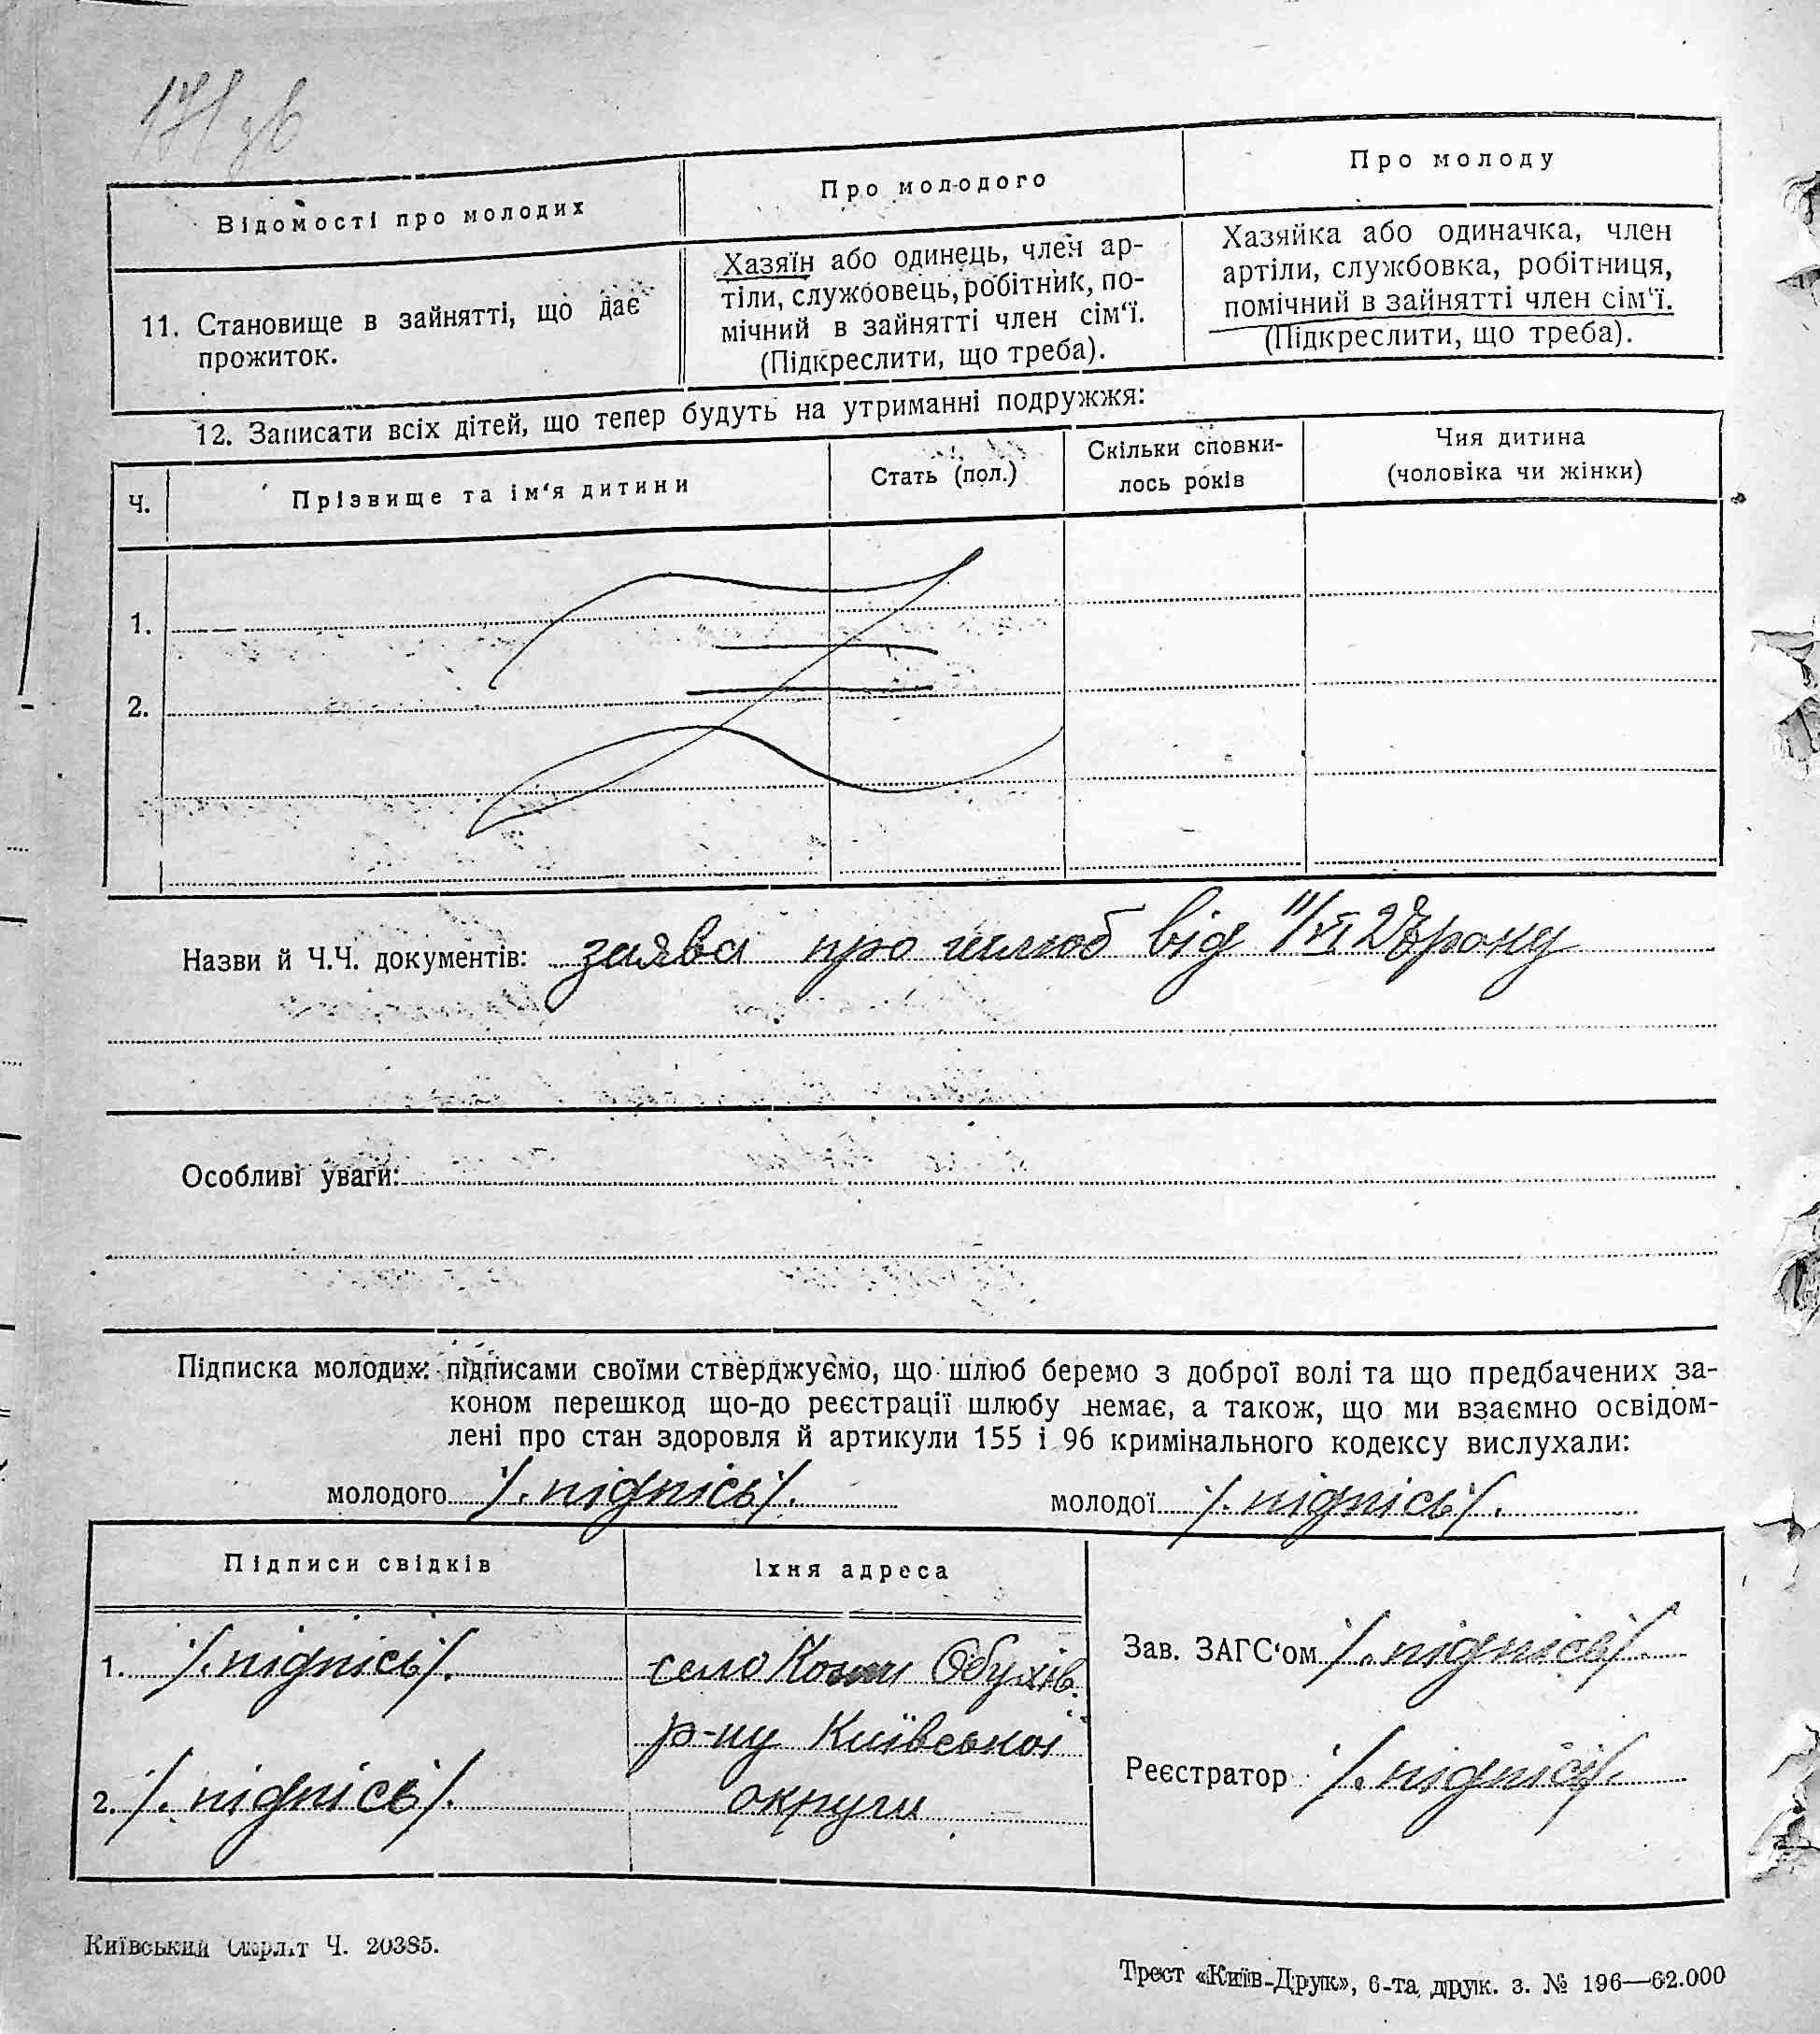 171 зв
Відомості про молодих
Про молодого
Про молоду
11. Становище в зайнятті, що дає
прожиток.
Хазяїн або одинець, член ар-
тіли, службовець, робітник, по-
мічний в зайнятті член сім‘ї.
(Підкреслити, що треба).
Хазяйка або одиначка, член
артіли, службовка, робітниця,
помічний в зайнятті член сім‘ї.
(Підкреслити, що треба).
12. Записати всіх дітей, що тепер будуть на утриманні подружжя:
Ч.
Прізвище та ім‘я дитини
Стать (пол.)
Скільки сповни-
лось років
Чия дитина
(чоловіка чи жінки)
1.
2.
Назви й Ч.Ч. документів: заява про шлюб від 11/VI року
Особливі уваги:
Підписка молодих: підписами своїми стверджуємо, що шлюб беремо з доброї волі та що предбачених за-
коном перешкод що-до реєстрації шлюбу немає, а також, що ми взаємно освідом-
лені про стан здоровля й артикули 155 і 96 кримінального кодексу вислухали:
молодого /. підпісь/. молодої /. підпісь/.
Підписи свідків
Їхня адреса
1. /. підпісь/.
село Обухів.
р-ну Київської
2. /. підпісь/.
округи
Зав. ЗАГС‘ом /. підпісь/.
Реєстратор /. підпісь/.
Київський Окрліт Ч. 20385.
Трест «Київ-Друк», 6-та друк. з. № 196—62.000